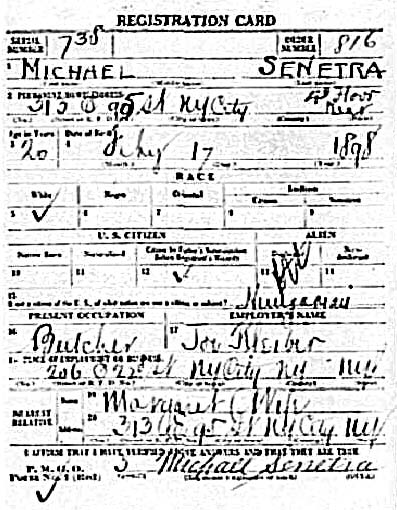 REGISTRATION CARD
SERIAL NUMBER 738 ORDER NUMBER 816
1 MICHAEL SENETRA
2 PERMANENT HOME ADDRESS:
313 E 95 St NYCity 4th Floor Rear
Age in Years Date of Birth
3 20 4 17 1898
RACE
White Negro Oriental Indian
Citizen Noncitizen
5 ✓ 6 7 8 9
U. S. CITIZEN ALIEN
Native Born Naturalized Citizen by Father's Naturalization Before Registrant's Majority
10 11 12 ✓ 13 14
15 If not a citizen of the U. S., of what nation are you a citizen or subject? Hungarian
PRESENT OCCUPATION EMPLOYER'S NAME
16 Butcher 17 Joe
18 PLACE OF EMPLOYMENT OR BUSINESS:
206 E St NYCity NY
NEAREST RELATIVE Name 19 Margaret (Wife
Address 20 313 E 95 St NYCity NY
I AFFIRM THAT I HAVE VERIFIED ABOVE ANSWERS AND THAT THEY ARE TRUE
P. M. G. O.
Form No. 1 (Red) Michael Senetra